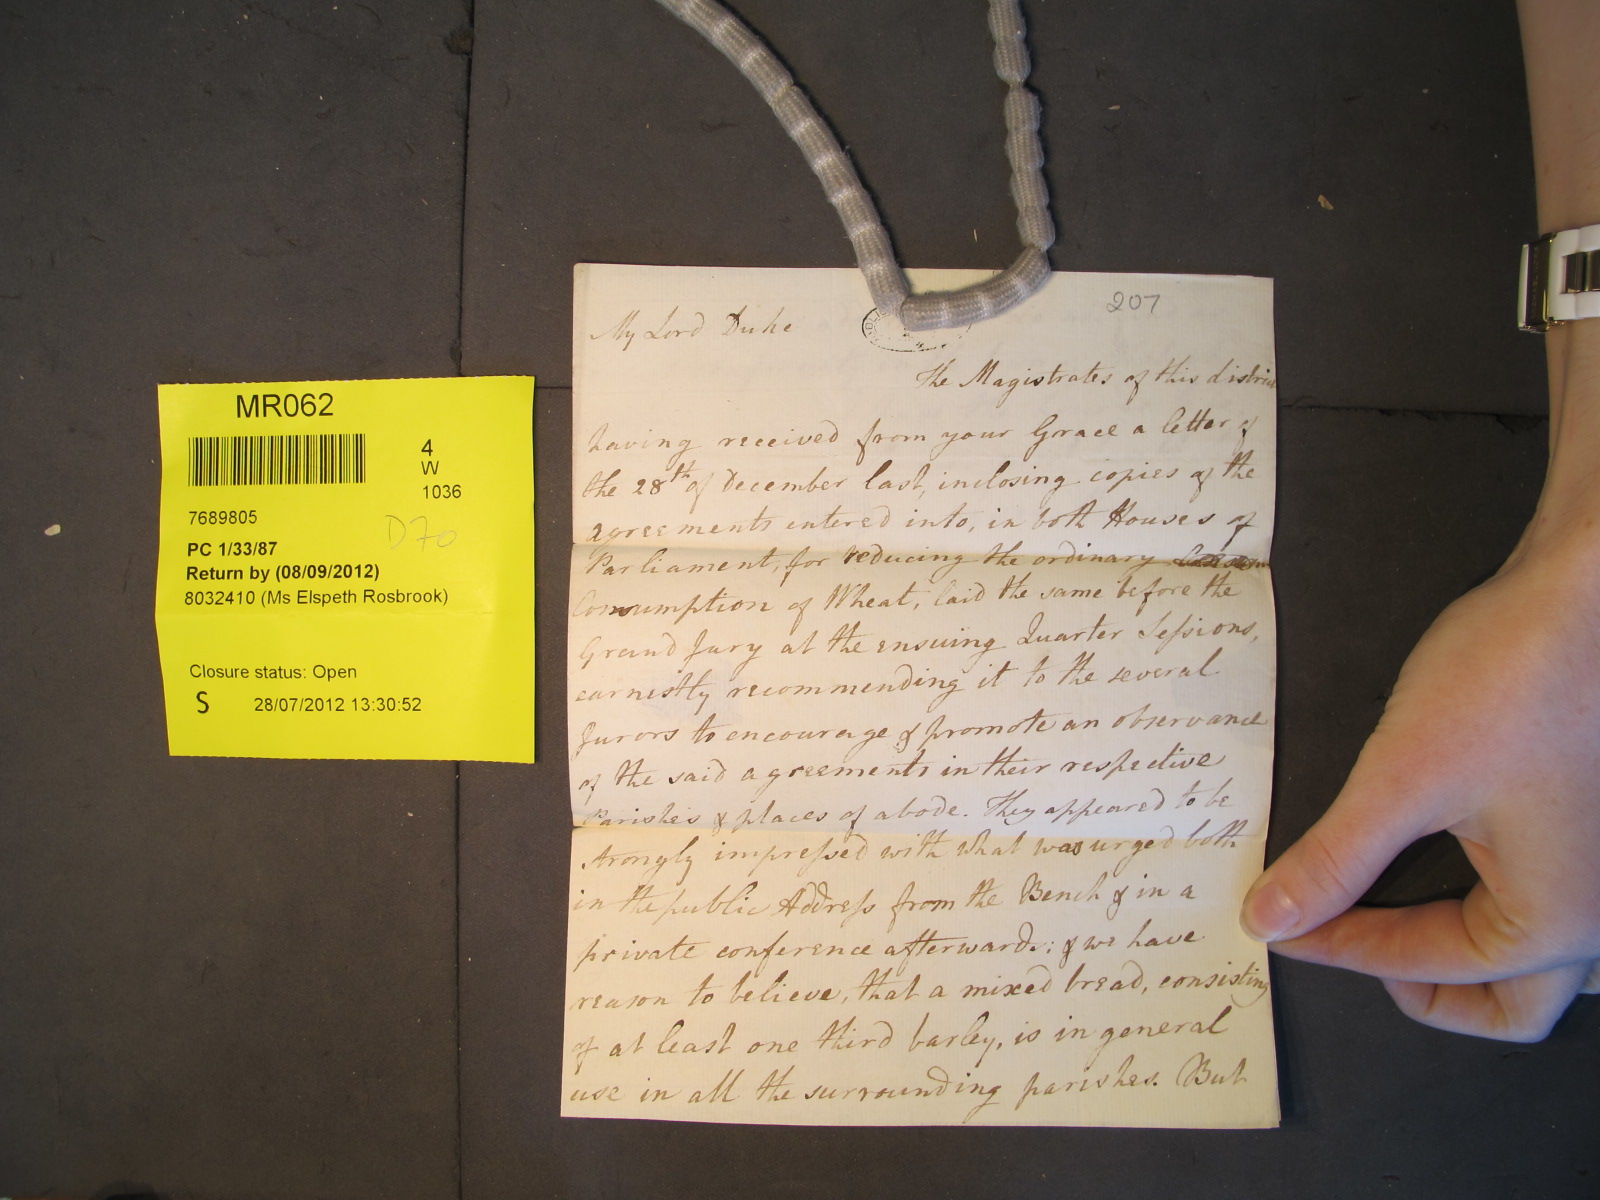 MR062
4
W
1036
7689805
D70
PC 1/33/87
Return by (08/09/2012)
8032410 (Ms Elspeth Rosbrook)
Closure status: Open
S 28/07/2012 13:30:52
207
My Lord Duke
The Magistrates of this district
having received from your Grace a letter of
the 28th of December last, inclosing copies of the
agreements entered into, in both Houses of
Parliament, for reducing the ordinary
Consumption of Wheat, laid the same before the
Grand Jury at the ensuing Quarter Sessions,
earnestly recommending it to the several
Jurors to encourage & promote an observance
of the said agreements in their respective
Parishes & places of abode. They appeared to be
strongly impressed with what was urged both
in the public Address from the Bench & in a
private conference afterwards: & we have
reason to believe, that a mixed bread, consisting
of at least one third barley, is in general
use in all the surrounding parishes. But